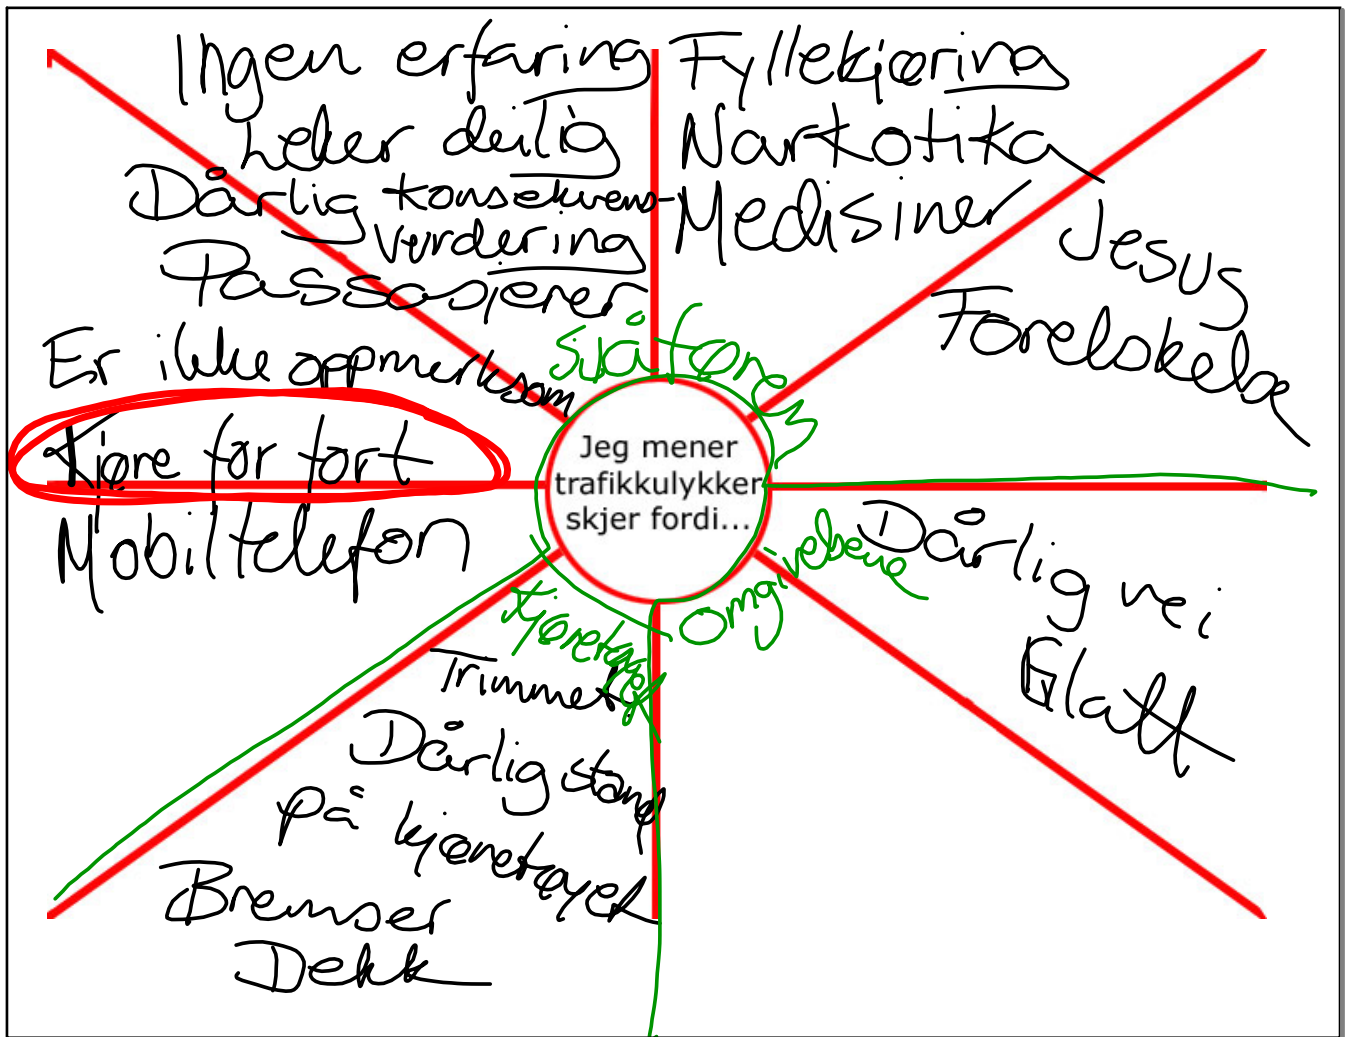 Ingen erfaring
Leker deilig
Dårlig konsekvens-
vurdering
Passasjerer
Er ikke oppmerksom
Kjøre for fort
Mobiltelefon
Fyllekjøring
Narkotika
Medisiner
Jesus
Forelskelse
sjåføren
Jeg mener
trafikkulykker
skjer fordi...
omgivelsene
Dårlig vei
Glatt
kjøretøyet
Trimmet
Dårlig stand
på kjøretøyet
Bremser
Dekk